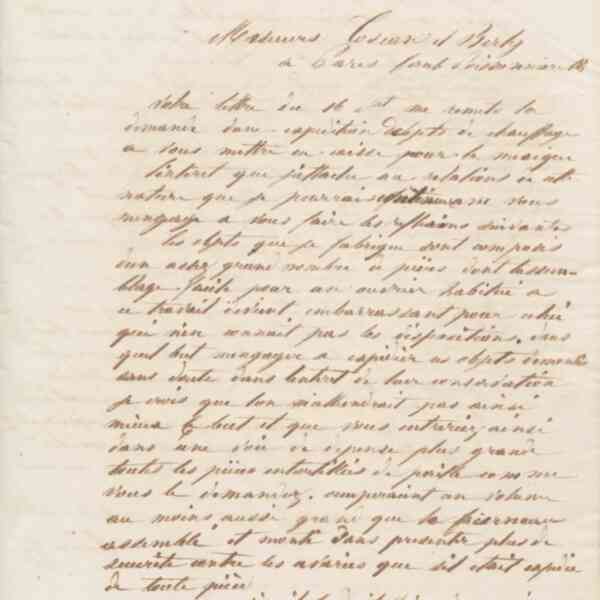 Messieurs et
à Paris faub Poissonnière
Votre lettre du 16 et me remets la
demande d'une expédition d'objets de chauffage
a vous mettre en caisse pour le mexique
L'interet que j'attache au relations de cette
nature que je pourrais avec vous
m'engage a vous faire les reflexions suivantes
les objets que je fabrique sont composés
d'un assez grand nombre de pièces dont l'assem-
blage facile pour un ouvrier habitué a
ce travail devient embarrassant pour celui
qui n'en connait pas les dispositions. Dans
quel but m'engager a expédier ces objets démontés
sans doute dans l'interet de leur conservation
je crois que l'on n'attendrait pas ainsi
mieux le but et que vous entreriez ainsi
dans une voie de dépense plus grande
toutes les pièces de paille comme
vous le demandez. un volume
au moins aussi grand que le fourneau
assemblé et monté sans presenter plus de
securité contre les avaries que s'il était expédié
de toute pièce